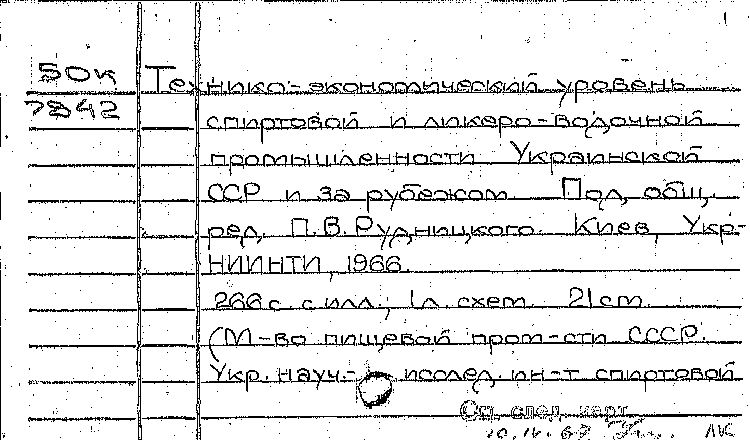 50к Технико-экономический уровень
7842 спиртовой и ликеро-водочной
промышленности Украинской
ССР и за рубежом. Под общ.
ред. П.В.Рудницкого. Киев, Укр-
НИИНТИ, 1966.
266 с. с илл.; 1 л. схем. 21 cm.
(М-во пищевой пром-сти СССР.
Укр. науч.- исслед. ин-т спиртовой
См. след. карт.